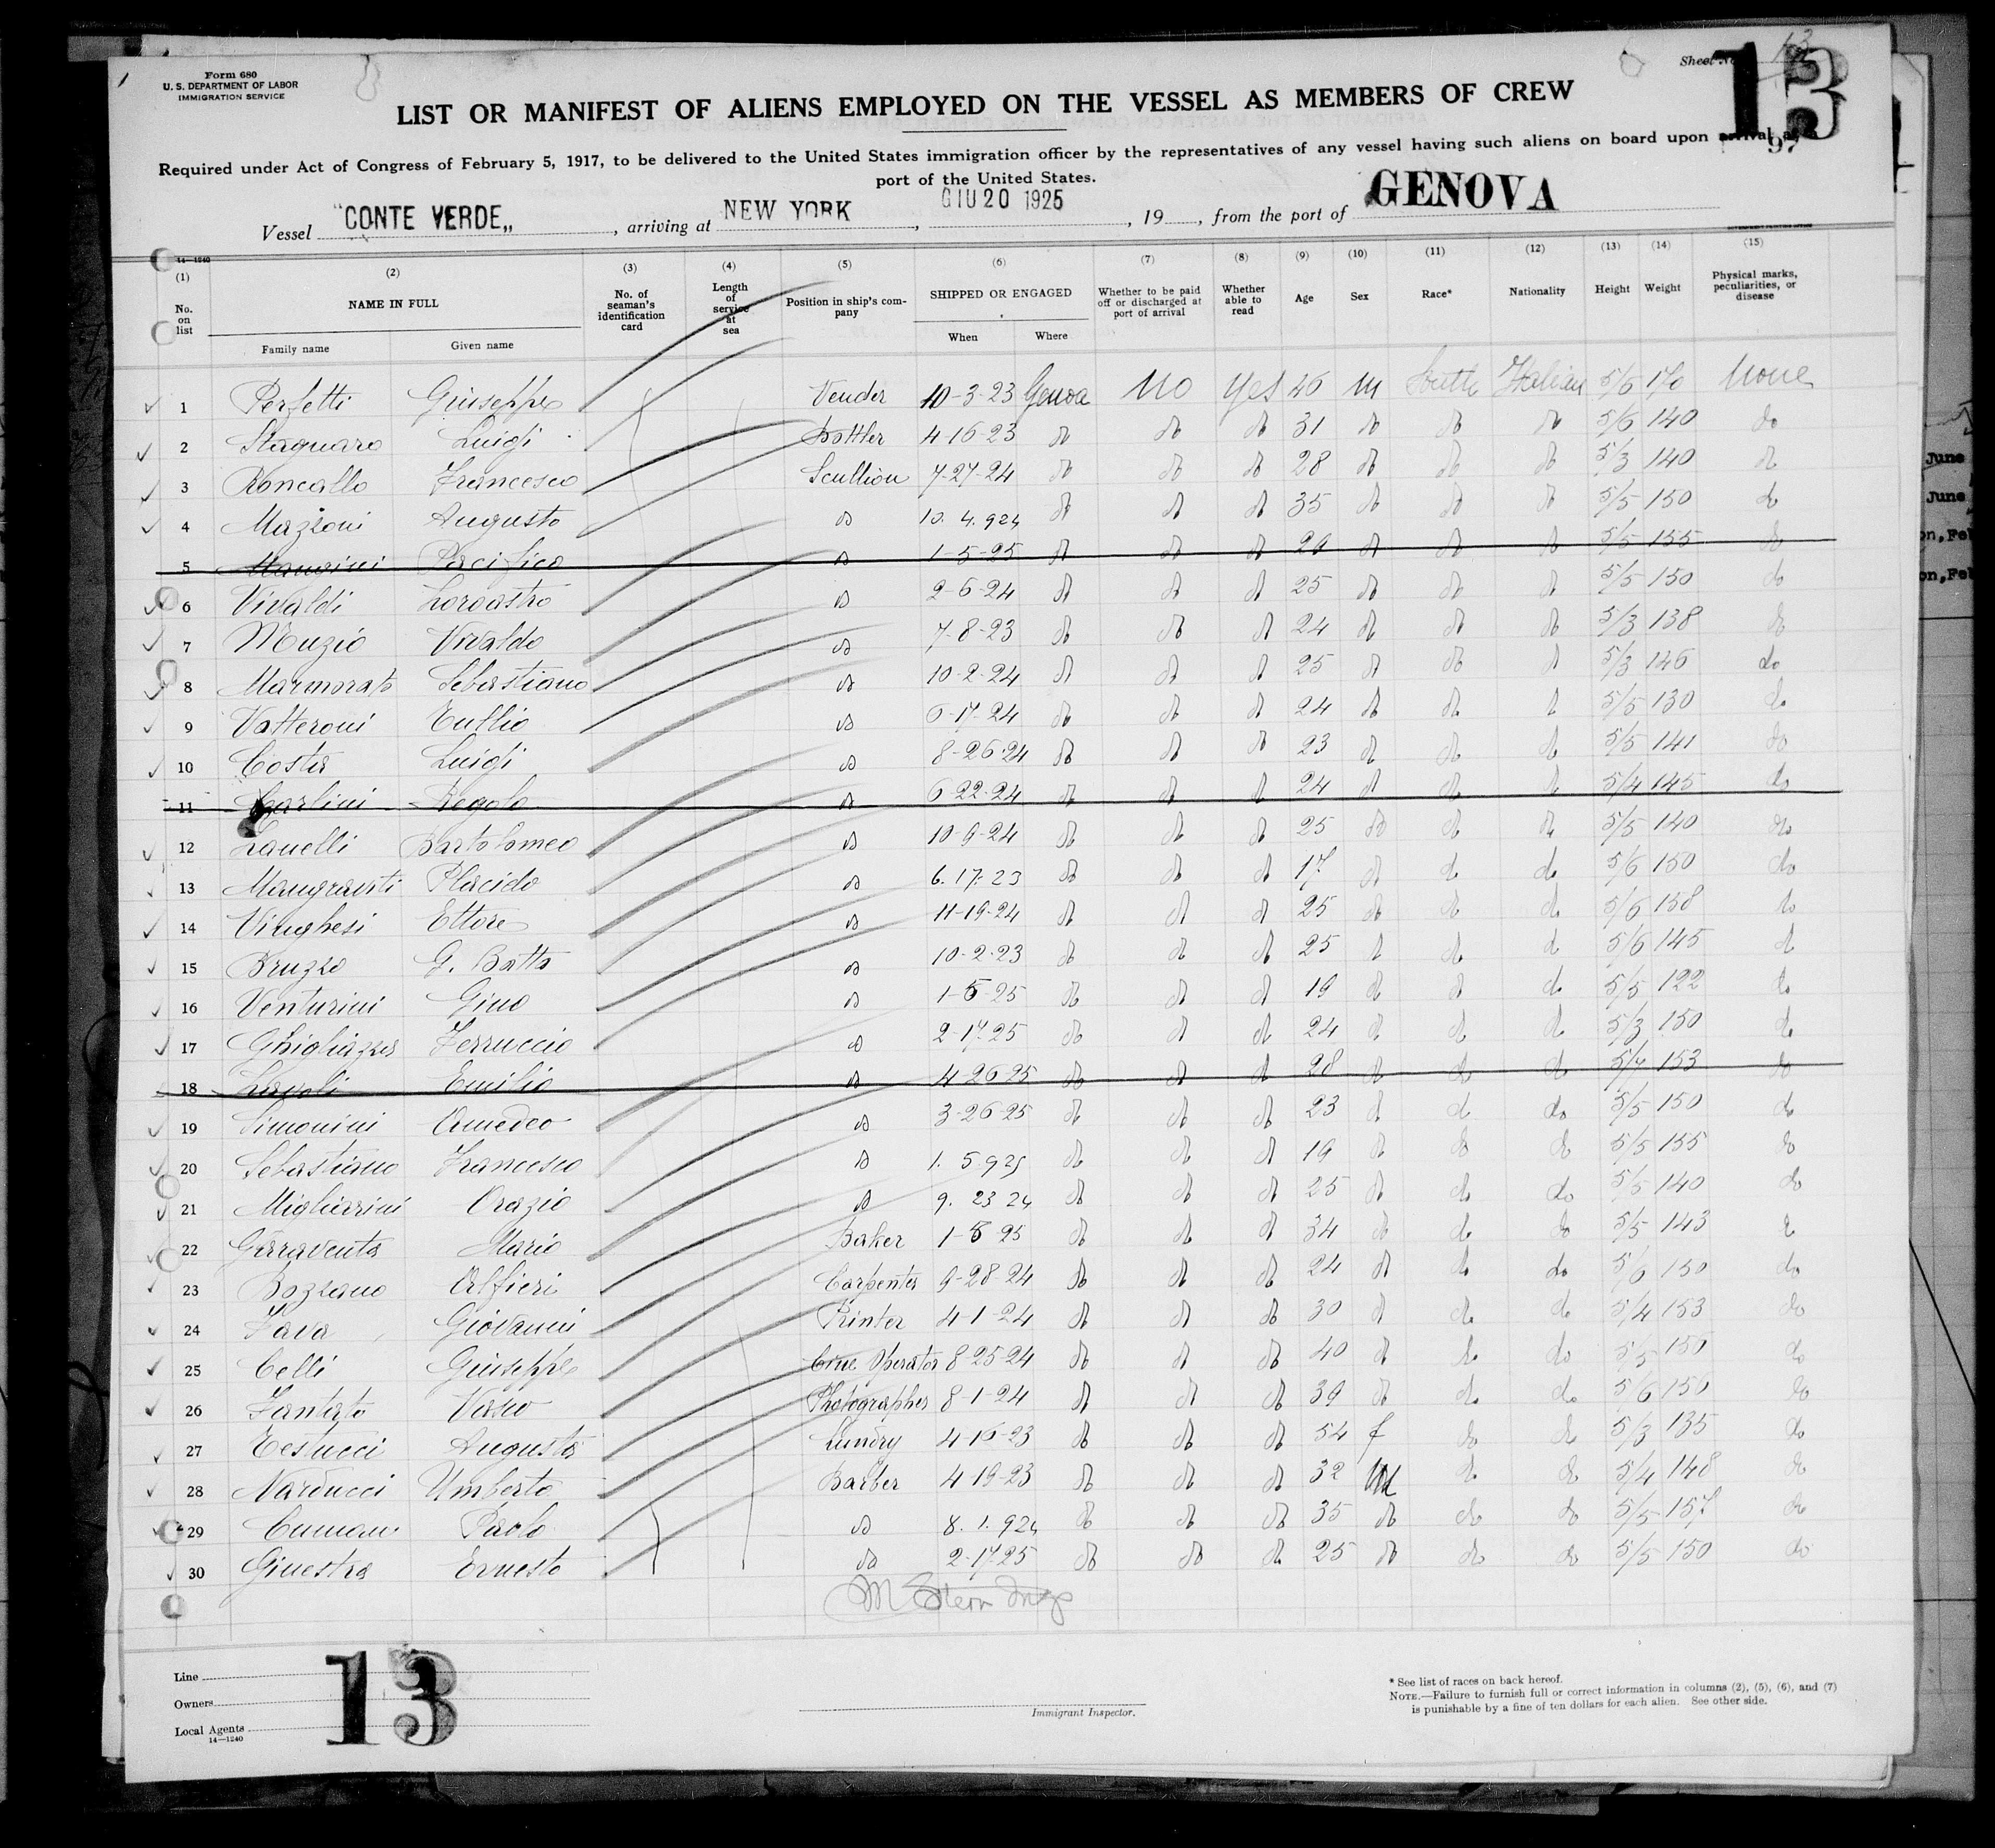 Form 680
U. S. DEPARTMENT OF LABOR
IMMIGRATION SERVICE
Sheet No. 13
13
LIST OR MANIFEST OF ALIENS EMPLOYED ON THE VESSEL AS MEMBERS OF CREW
Required under Act of Congress of February 5, 1917, to be delivered to the United States immigration officer by the representatives of any vessel having such aliens on board upon arrival at a
port of the United States.
Vessel "CONTE VERDE„ , arriving at NEW YORK , GIU 20 1925 , 19 , from the port of GENOVA
14—1240
(1) (2) (3) (4) (5) (6) (7) (8) (9) (10) (11) (12) (13) (14) (15)
No. on list NAME IN FULL No. of seaman's identification card Length of service at sea Position in ship's company SHIPPED OR ENGAGED Whether to be paid off or discharged at port of arrival Whether able to read Age Sex Race* Nationality Height Weight Physical marks, peculiarities, or disease
Family name Given name When Where
1 Perfetti Giuseppe Vender 10-3-23 Genoa No Yes 46 m South Italian 5/6 170 None
2 Stagnaro Luigi Bottler 4-16-23 do do do 31 do do do 5/6 140 do
3 Roncallo Francesco Scullion 7-27-24 do do do 28 do do do 5/3 140 do
4 Mazzoni Augusto do 10. 4. 924 do do do 35 do do do 5/5 150 do
5 Mancini Pacifico do 1-5-25 do do do do do do 5/5 155 do
6 Vivaldi Zoroastro do 2-6-24 do do do 25 do do do 5/5 150 do
7 Muzio Vivaldo do 7-8-23 do do do 24 do do do 5/3 138 do
8 Marmorato Sebastiano do 10-2-24 do do do 25 do do do 5/3 146 do
9 Vatteroni Tullio do 6-17-24 do do do 24 do do do 5/5 130 do
10 Costa Luigi do 8-26-24 do do do 23 do do do 5/5 141 do
11 Carlini Regolo do 6-22-24 do do do 24 do do do 5/4 145 do
12 Zanelli Bartolomeo do 10-9-24 do do do 25 do do do 5/5 140 do
13 Mangraviti Placido do 6. 17. 23 do do do 17 do do do 5/6 150 do
14 Vinghesi Ettore do 11-19-24 do do do 25 do do do 5/6 158 do
15 Bruzzo G. Batta do 10-2-23 do do do 25 do do do 5/6 145 do
16 Venturini Gino do 1-5-25 do do do 19 do do do 5/5 122 do
17 Ghigliazza Ferruccio do 2-17-25 do do do 24 do do do 5/3 150 do
18 Emilio do 4-26-25 do do do 28 do do do 5/4 153 do
19 Simonini Amedeo do 3-26-25 do do do 23 do do do 5/5 150 do
20 Sebastiano Francesco do 1. 5 925 do do do 19 do do do 5/5 155 do
21 Migliarini Orazio do 9. 23 24 do do do 25 do do do 5/5 140 do
22 Garaventa Mario Baker 1-5-25 do do do 34 do do do 5/5 143 do
23 Bozzano Alfieri Carpenter 9-28-24 do do do 24 do do do 5/6 150 do
24 Fava Giovanni Printer 4-1-24 do do do 30 do do do 5/4 153 do
25 Celli Giuseppe Cine Operator 8-25-24 do do do 40 do do do 5/5 150 do
26 Fantato Vasco Photographer 8-1-24 do do do 39 do do do 5/6 150 do
27 Testucci Augusta Lundry 4-16-23 do do do 54 f do do 5/3 135 do
28 Narducci Umberto Barber 4-19-23 do do do 32 M do do 5/4 148 do
29 Cuman Paolo do 8. 1. 924 do do do 35 do do do 5/5 157 do
30 Ginestra Ernesto do 2-17-25 do do do 25 do do do 5/5 150 do
Line
Owners
Local Agents
14—1240
13
Immigrant Inspector.
* See list of races on back hereof.
NOTE.—Failure to furnish full or correct information in columns (2), (5), (6), and (7)
is punishable by a fine of ten dollars for each alien. See other side.
June
June
on, Fe
on, Fe